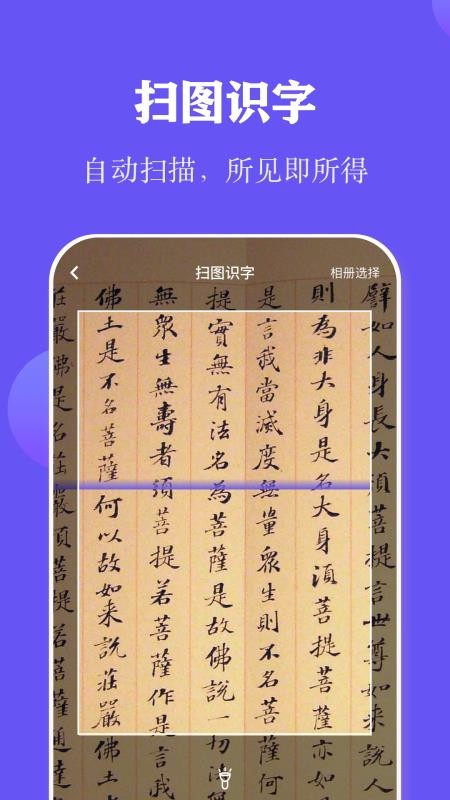 扫图识字
自动扫描，所见即所得
扫图识字
相册选择
譬如人身長大須菩提言世尊如来說人
則為非大身是名大身須菩提菩薩亦如
是言我當滅度無量眾生則不名菩薩何
提實無有法名為菩薩是故佛說一切法
無眾生無壽者須菩提若菩薩作是言我
佛土是不名菩薩何以故如来說莊嚴佛土
莊嚴佛是名莊嚴須菩提若菩薩通達